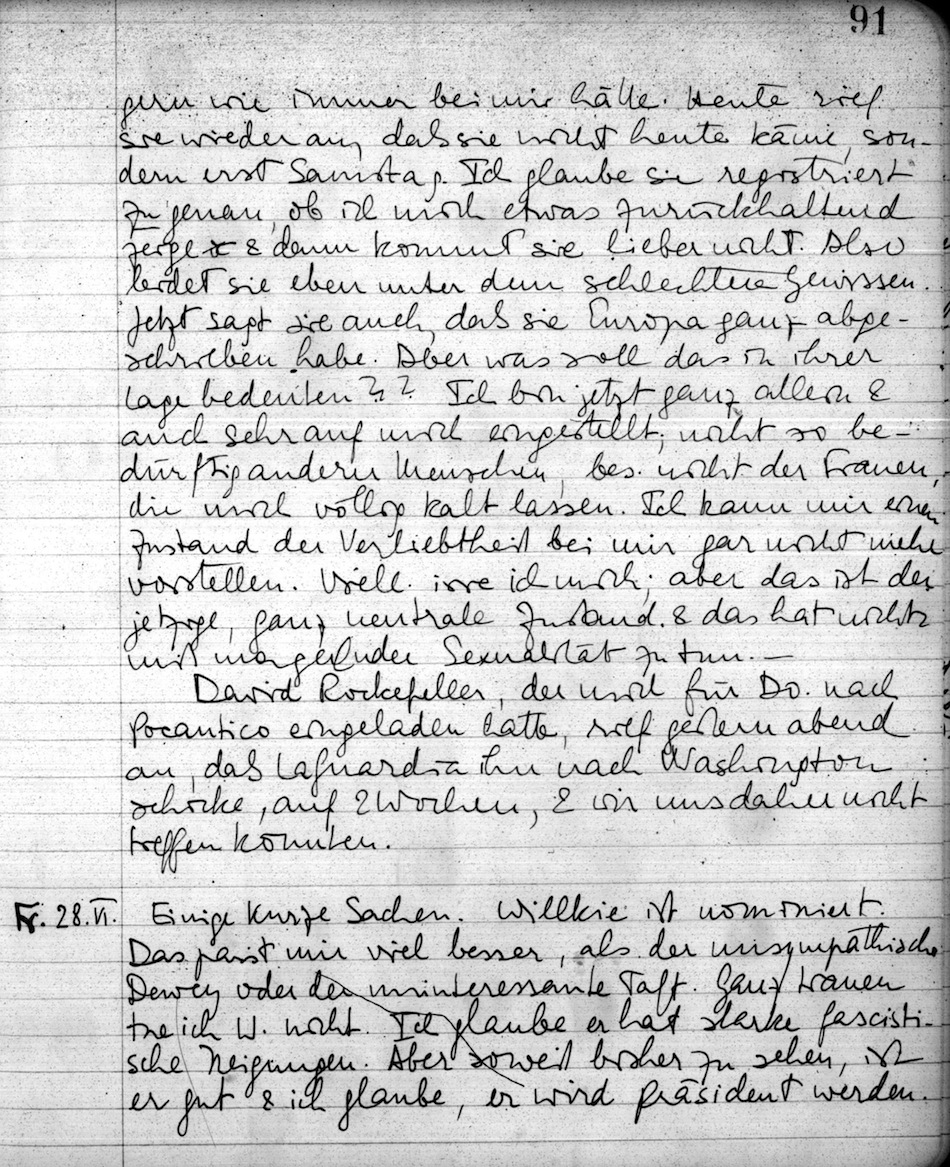 91
gern wie immer bei mir hätte. Heute rief
sie wieder an, dass sie nicht heute käme, son-
dern erst Samstag. Ich glaube sie registriert
zu genau, ob ich mich etwas zurückhaltend
zeige & dann kommt sie lieber nicht. Also
leidet sie eben unter dem schlechten Gewissen.
Jetzt sagt sie auch, dass sie Europa ganz abge-
schrieben habe. Aber was soll das in ihrer
Lage bedeuten?? Ich bin jetzt ganz allein &
auch sehr auf mich eingestellt, nicht so be-
dürftig andern Menschen, bes. nicht der Frauen,
die mich völlig kalt lassen. Ich kann mir einen
Zustand der Verliebtheit bei mir gar nicht mehr
vorstellen. Viell. irre ich mich; aber das ist der
jetzige, ganz neutrale Zustand. & das hat nichts
mit mangelnder Sexualität zu tun. —
David Rockefeller, der mich für Do. nach
Pocantico eingeladen hatte, rief gestern abend
an, dass Laguardia ihn nach Washington
schicke, auf 2 Wochen, & wir uns daher nicht
treffen könnten.
Fr. 28.VI. Einige kurze Sachen. Willkie ist nominiert.
Das passt mir viel besser, als der unsympathische
Dewey oder der uninteressante Taft. Ganz trauen
tue ich W. nicht. Ich glaube er hat starke fascisti-
sche Neigungen. Aber soweit bisher zu sehen, ist
er gut & ich glaube, er wird Präsident werden.